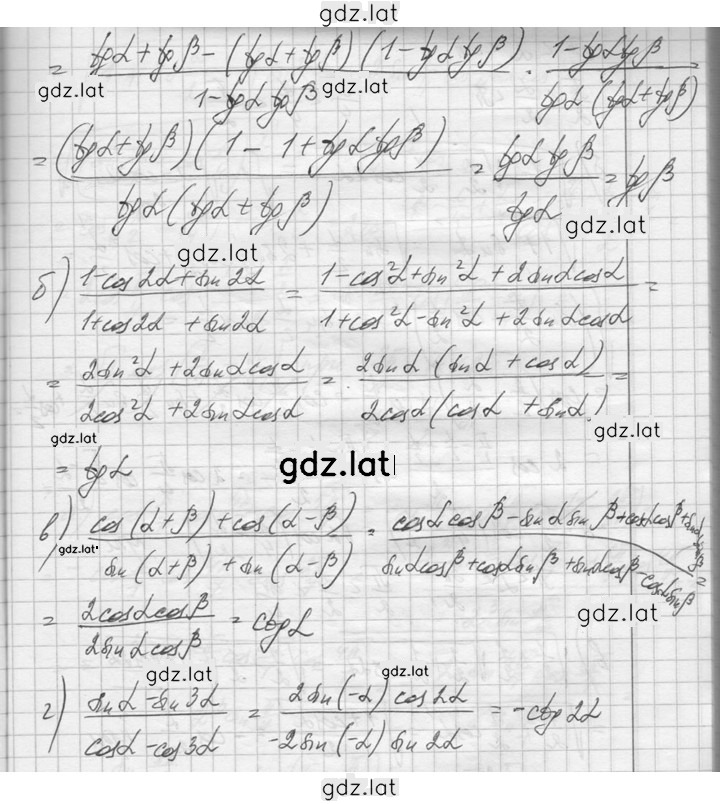 gdz.lat
= (tgα + tgβ - (tgα + tgβ)(1 - tgα tgβ))/(1 - tgα tgβ) · (1 - tgα tgβ)/(tgα (tgα + tgβ)) =
gdz.lat gdz.lat
= ((tgα + tgβ)(1 - 1 + tgα tgβ))/(tgα (tgα + tgβ)) = (tgα tgβ)/(tgα) = tgβ
gdz.lat
gdz.lat
б) (1 - cos2α + sin2α)/(1 + cos2α + sin2α) = (1 - cos²α + sin²α + 2sinα cosα)/(1 + cos²α - sin²α + 2sinα cosα) =
= (2sin²α + 2sinα cosα)/(2cos²α + 2sinα cosα) = (2sinα (sinα + cosα))/(2cosα (cosα + sinα)) =
gdz.lat
gdz.lat
= tgα
gdz.lat
в) (cos(α+β) + cos(α-β))/(sin(α+β) + sin(α-β)) = (cosα cosβ - sinα sinβ + cosα cosβ + sinα sinβ)/(sinα cosβ + cosα sinβ + sinα cosβ - cosα sinβ) =
gdz.lat
= (2cosα cosβ)/(2sinα cosβ) = ctgα
gdz.lat
gdz.lat gdz.lat
г) (sinα - sin3α)/(cosα - cos3α) = (2sin(-α) cos2α)/(-2sin(-α) sin2α) = -ctg2α
gdz.lat
gdz.lat
gdz.lat